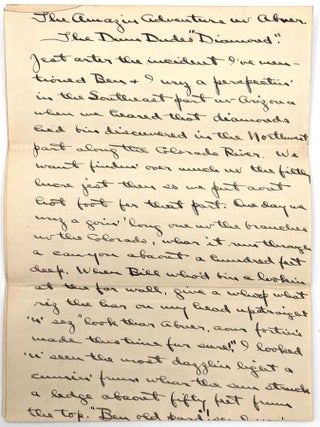 The Amazin Adventure uv Abner.
The Dum Dudes "Diamond".
Jest arter the incident I've men-
tioned Ben & I wuz a perspectin'
in the Southeast part uv Arizona
when we heared that diamonds
hed bin discovered in the Northwest
part along the Colorado River. We
want findin' over much uv the filthy
lucre jest then so we put aout
hot foot for that part. One day we
wuz a goin' 'long one uv the branches
uv the Colorado, whar it run through
a canyou abaout a hundred feet
deep. When Bill who'd bin a lookin
at the far wall, give a whoop what
riz the har on my head up straight
'n' sez "look thar Abner, aour fortin's
made this time fur sure!" I looked
'n' seen the most dazzlin light a
cumin' frum whar the sun struck
a ledge abaout fifty feet frum
the top. "Ben old pard'